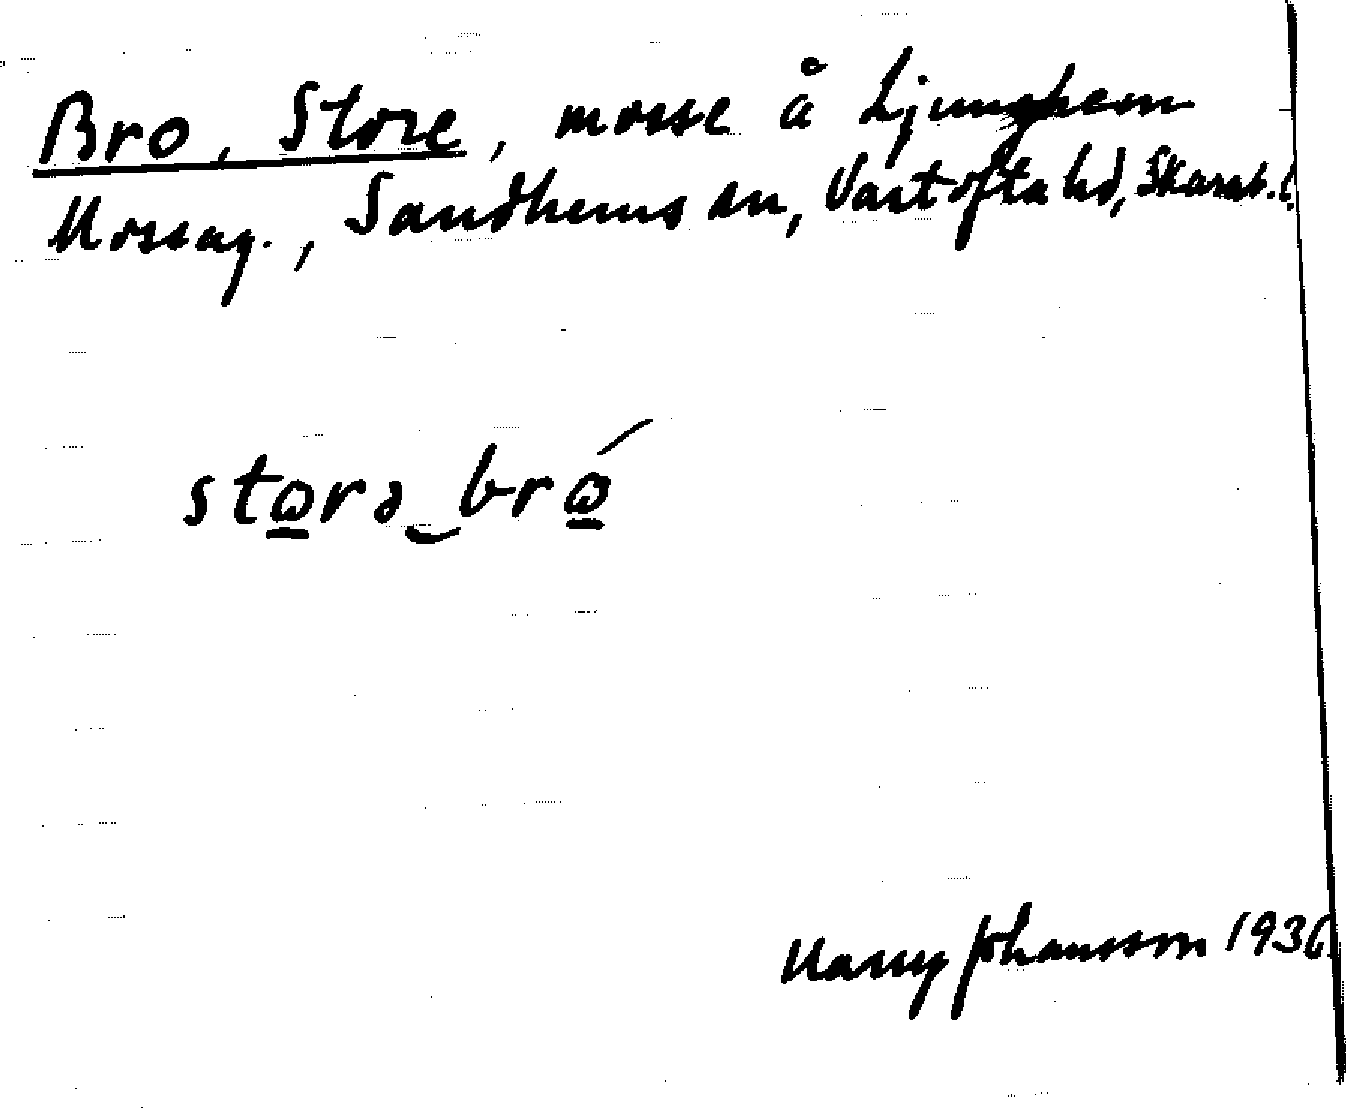 Bro, Store, mosse å Ljunghem
Mossag., Sandhems sn, Vartofta hd, Skarab. l.
störə‿brö́
Harry Johansson 1936.